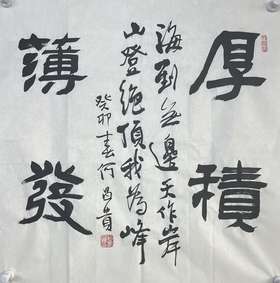 厚積
薄發
海到無邊天作岸
山登絕頂我為峰
癸卯春何昌貴